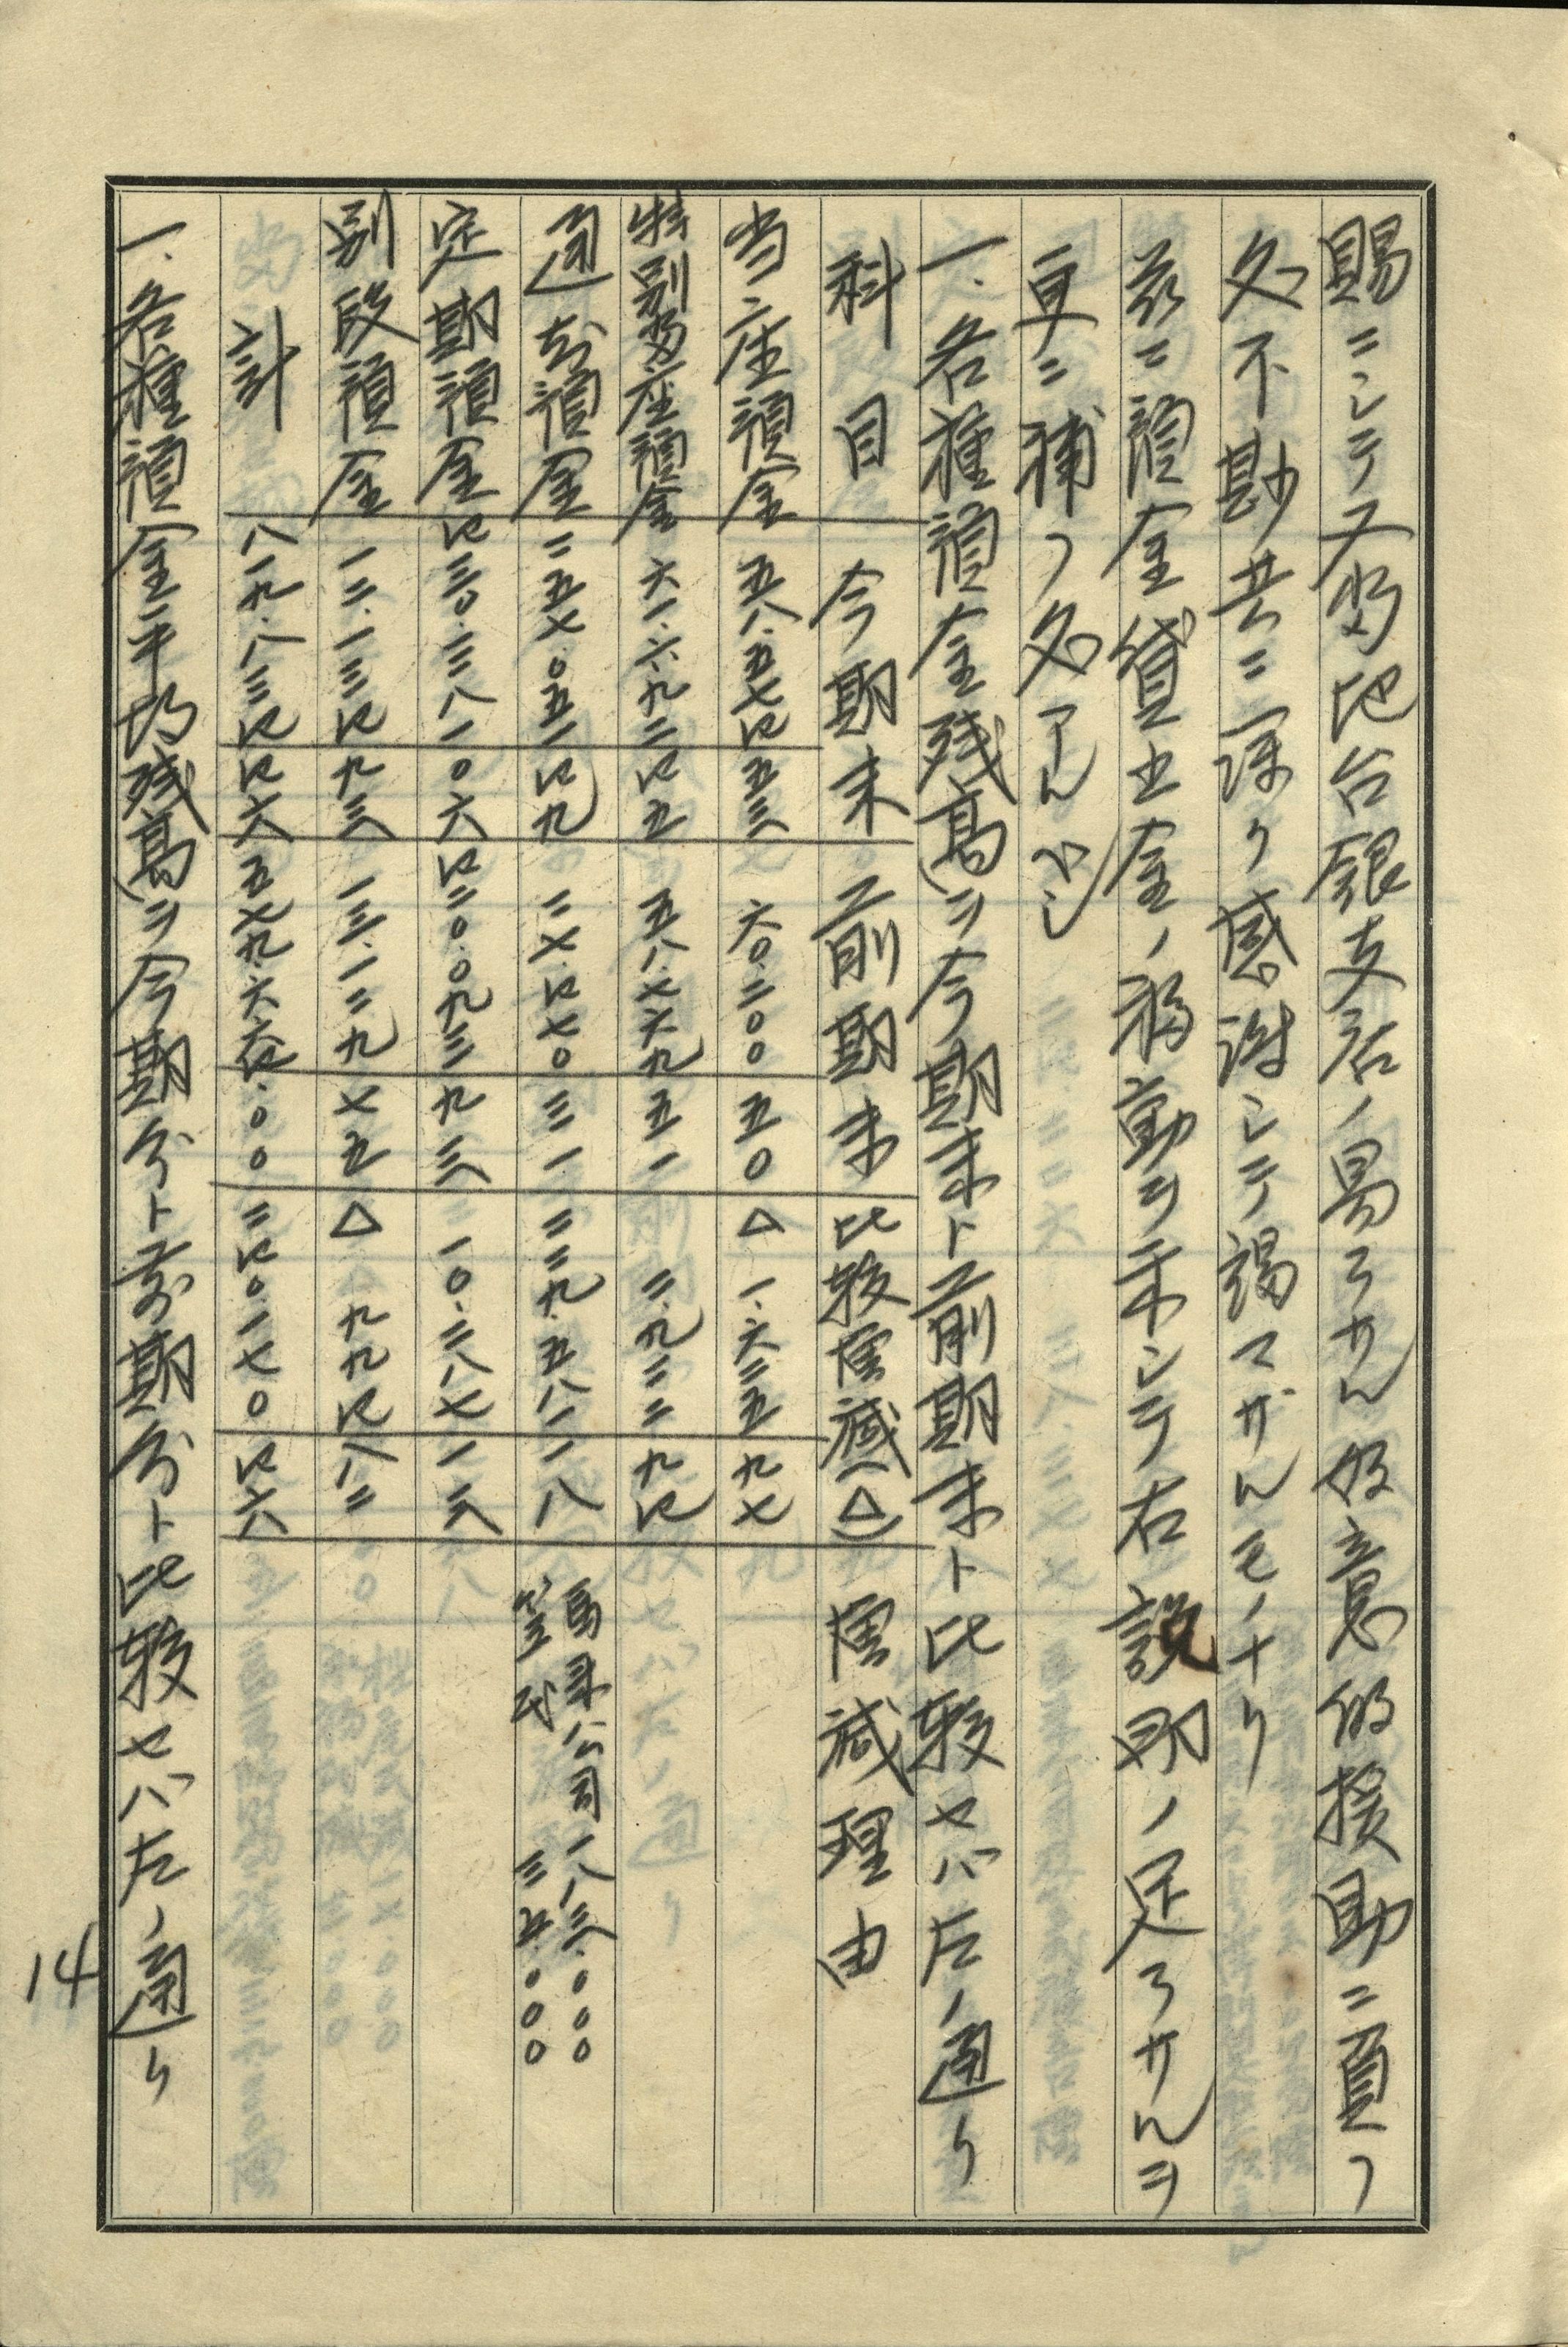 賜ニシテ又当地台銀支店ノ易ラサル好意的援助ニ負フ
処不尠共ニ深ク感謝シテ謁マザルモノナリ
茲ニ預金貸出金ノ移動ヲ示シテ右説明ノ足ラサルヲ
更ニ補フ処アルベシ
一、各種預金残高ヲ今期末ト前期末ト比較セバ左ノ通リ
科目 今期末 前期末 比較増減(△) 増減理由
当座預金 五八.五七四五三 六〇.二〇〇五〇 △一.六二五九七
特別当座預金 六一.六九二四五 五八.七六九五一 二.九二二九四
通知預金 二五七.〇五一四九 二七.四七〇三一 二二九.五八一一八 馬来公司 一八三.〇〇〇 三五.〇〇〇
定期預金 四三〇.三八一〇六 四二〇.〇九三九三 一〇.二八七一三
別段預金 一二.一三四九三 一三.一二九七五 △九九四八二
計 八一九.八三四四六 五七九.六六四.〇〇 二四〇.一七〇四六
一、各種預金平均残高ヲ今期分ト前期分ト比較セバ左ノ通リ
14